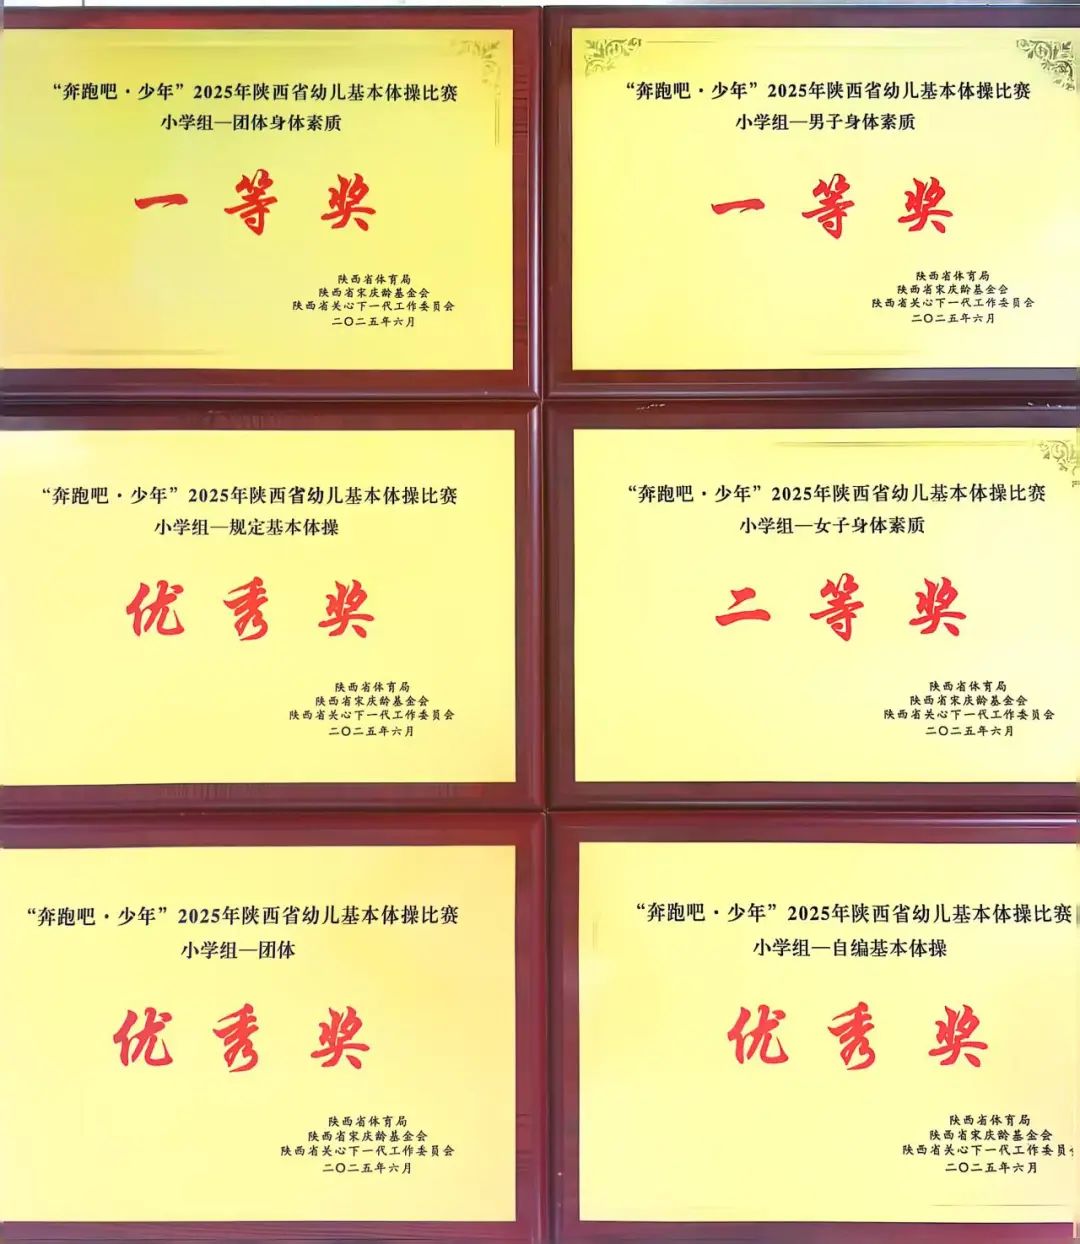 “奔跑吧·少年”2025年陕西省幼儿基本体操比赛
小学组—团体身体素质
一等奖
陕西省体育局
陕西省宋庆龄基金会
陕西省关心下一代工作委员会
二〇二五年六月
“奔跑吧·少年”2025年陕西省幼儿基本体操比赛
小学组—男子身体素质
一等奖
陕西省体育局
陕西省宋庆龄基金会
陕西省关心下一代工作委员会
二〇二五年六月
“奔跑吧·少年”2025年陕西省幼儿基本体操比赛
小学组—规定基本体操
优秀奖
陕西省体育局
陕西省宋庆龄基金会
陕西省关心下一代工作委员会
二〇二五年六月
“奔跑吧·少年”2025年陕西省幼儿基本体操比赛
小学组—女子身体素质
二等奖
陕西省体育局
陕西省宋庆龄基金会
陕西省关心下一代工作委员会
二〇二五年六月
“奔跑吧·少年”2025年陕西省幼儿基本体操比赛
小学组—团体
优秀奖
陕西省体育局
陕西省宋庆龄基金会
陕西省关心下一代工作委员会
二〇二五年六月
“奔跑吧·少年”2025年陕西省幼儿基本体操比赛
小学组—自编基本体操
优秀奖
陕西省体育局
陕西省宋庆龄基金会
陕西省关心下一代工作委员会
二〇二五年六月